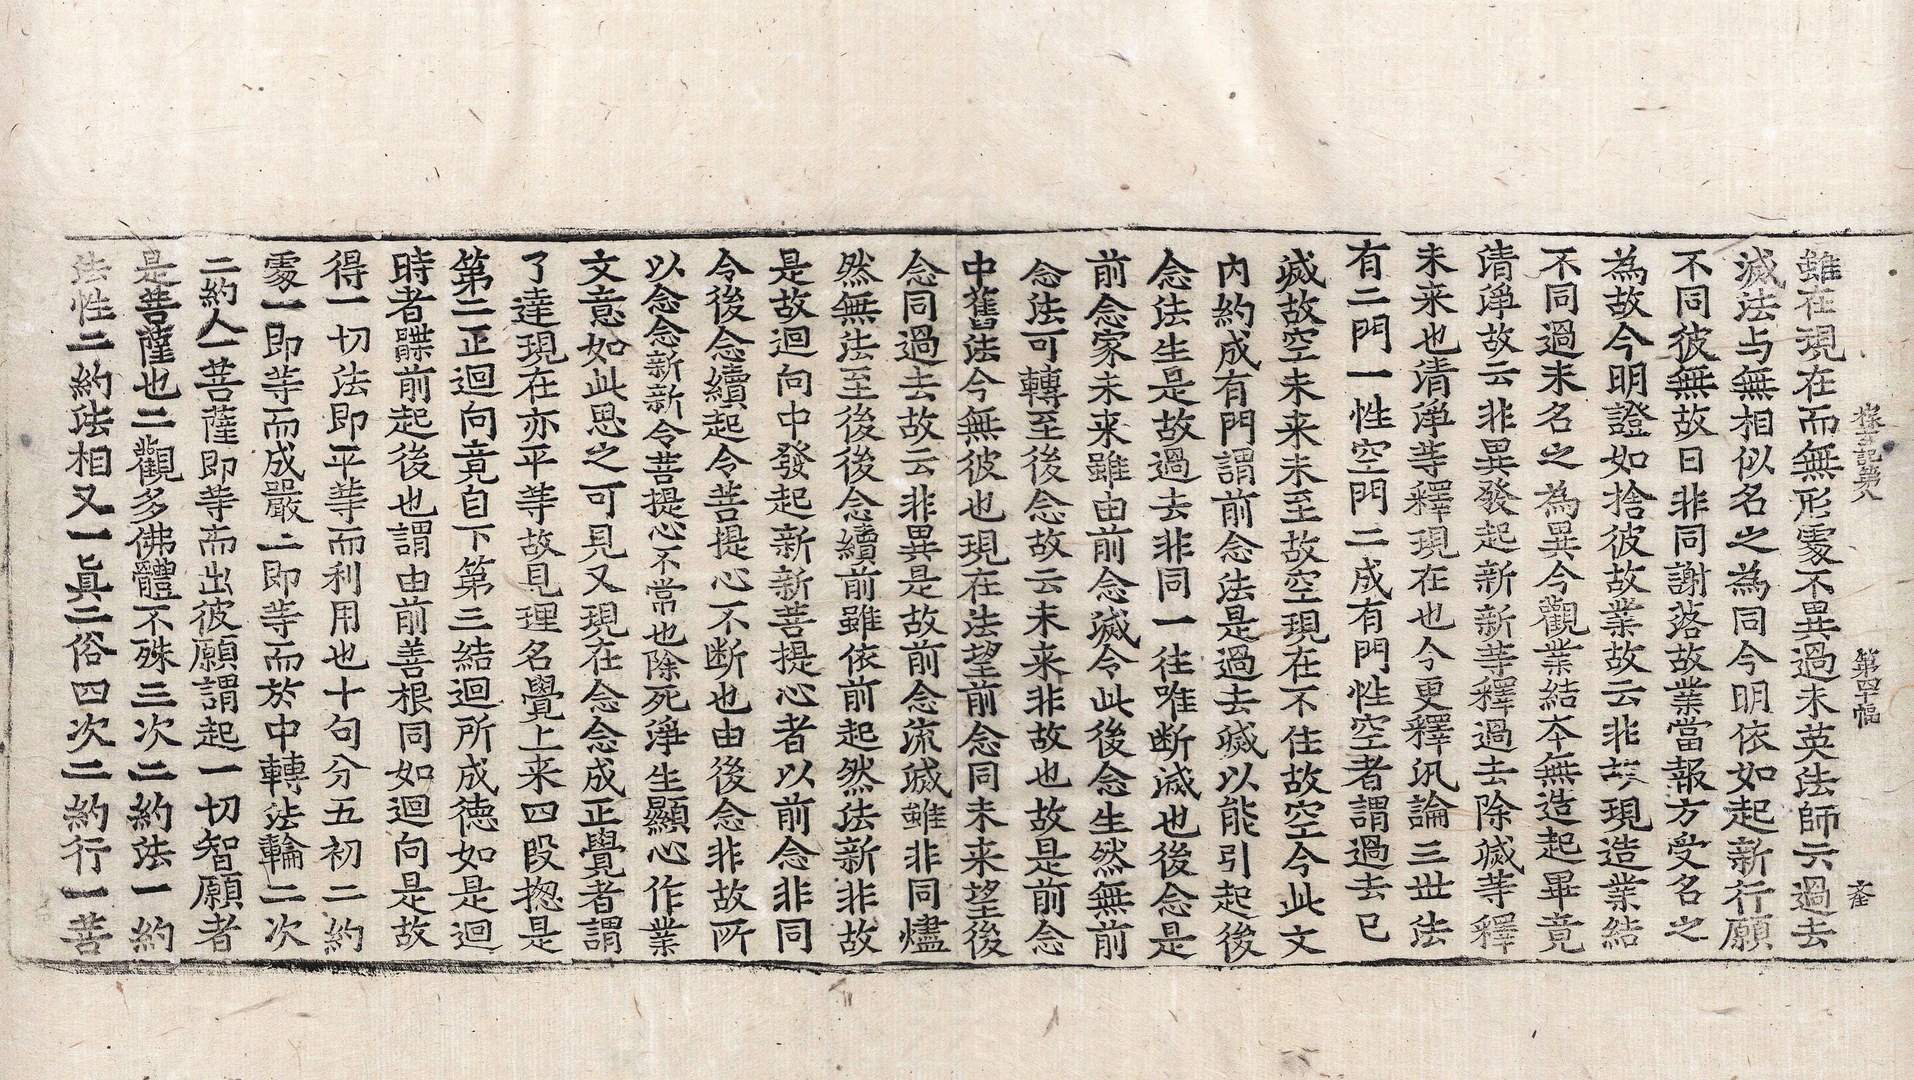 探玄記第八 第四十幅 荃
雖在現在而無形䨥不異過未英法師云過去
滅法与無相似名之為同今明依如起新行願
不同彼無故曰非同謝落故業當報方受名之
為故今明證如捨彼故業故云非故現造業結
不同過未名之為異今觀業結夲無造起畢竟
清淨故云非異發起新新等釋過去除滅等釋
未来也清淨等釋現在也今更釋汎論三世法
有二門一性空門二成有門性空者謂過去已
滅故空未来未至故空現在不住故空今此文
內約成有門謂前念法是過去滅以能引起後
念法生是故過去非同一往唯断滅也後念是
前念家未来雖由前念滅令此後念生然無前
念法可轉至後念故云未来非故也故是前念
中舊法今無彼也現在法望前念同未来望後
念同過去故云非異是故前念流滅雖非同燼
然無法至後後念續前雖依前起然法新非故
是故迴向中發起新新菩提心者以前念非同
令後念續起令菩提心不断也由後念非故所
以念念新新令菩提心不常也除死淨生顯心作業
文意如此思之可見又現在念念成正覺者謂
了達現在亦平等故見理名覺上来四段揔是
第二正迴向竟自下第三結迴所成德如是迴
時者牒前起後也謂由前善根同如迴向是故
得一切法即平等而利用也十句分五初二約
䨥一即等而成嚴二即等而於中轉法輪二次
二約人一菩薩即等而出彼願謂起一切智願者
是菩薩也二觀多佛體不殊三次二約法一約
法性二約法相又一眞二俗四次二約行一菩